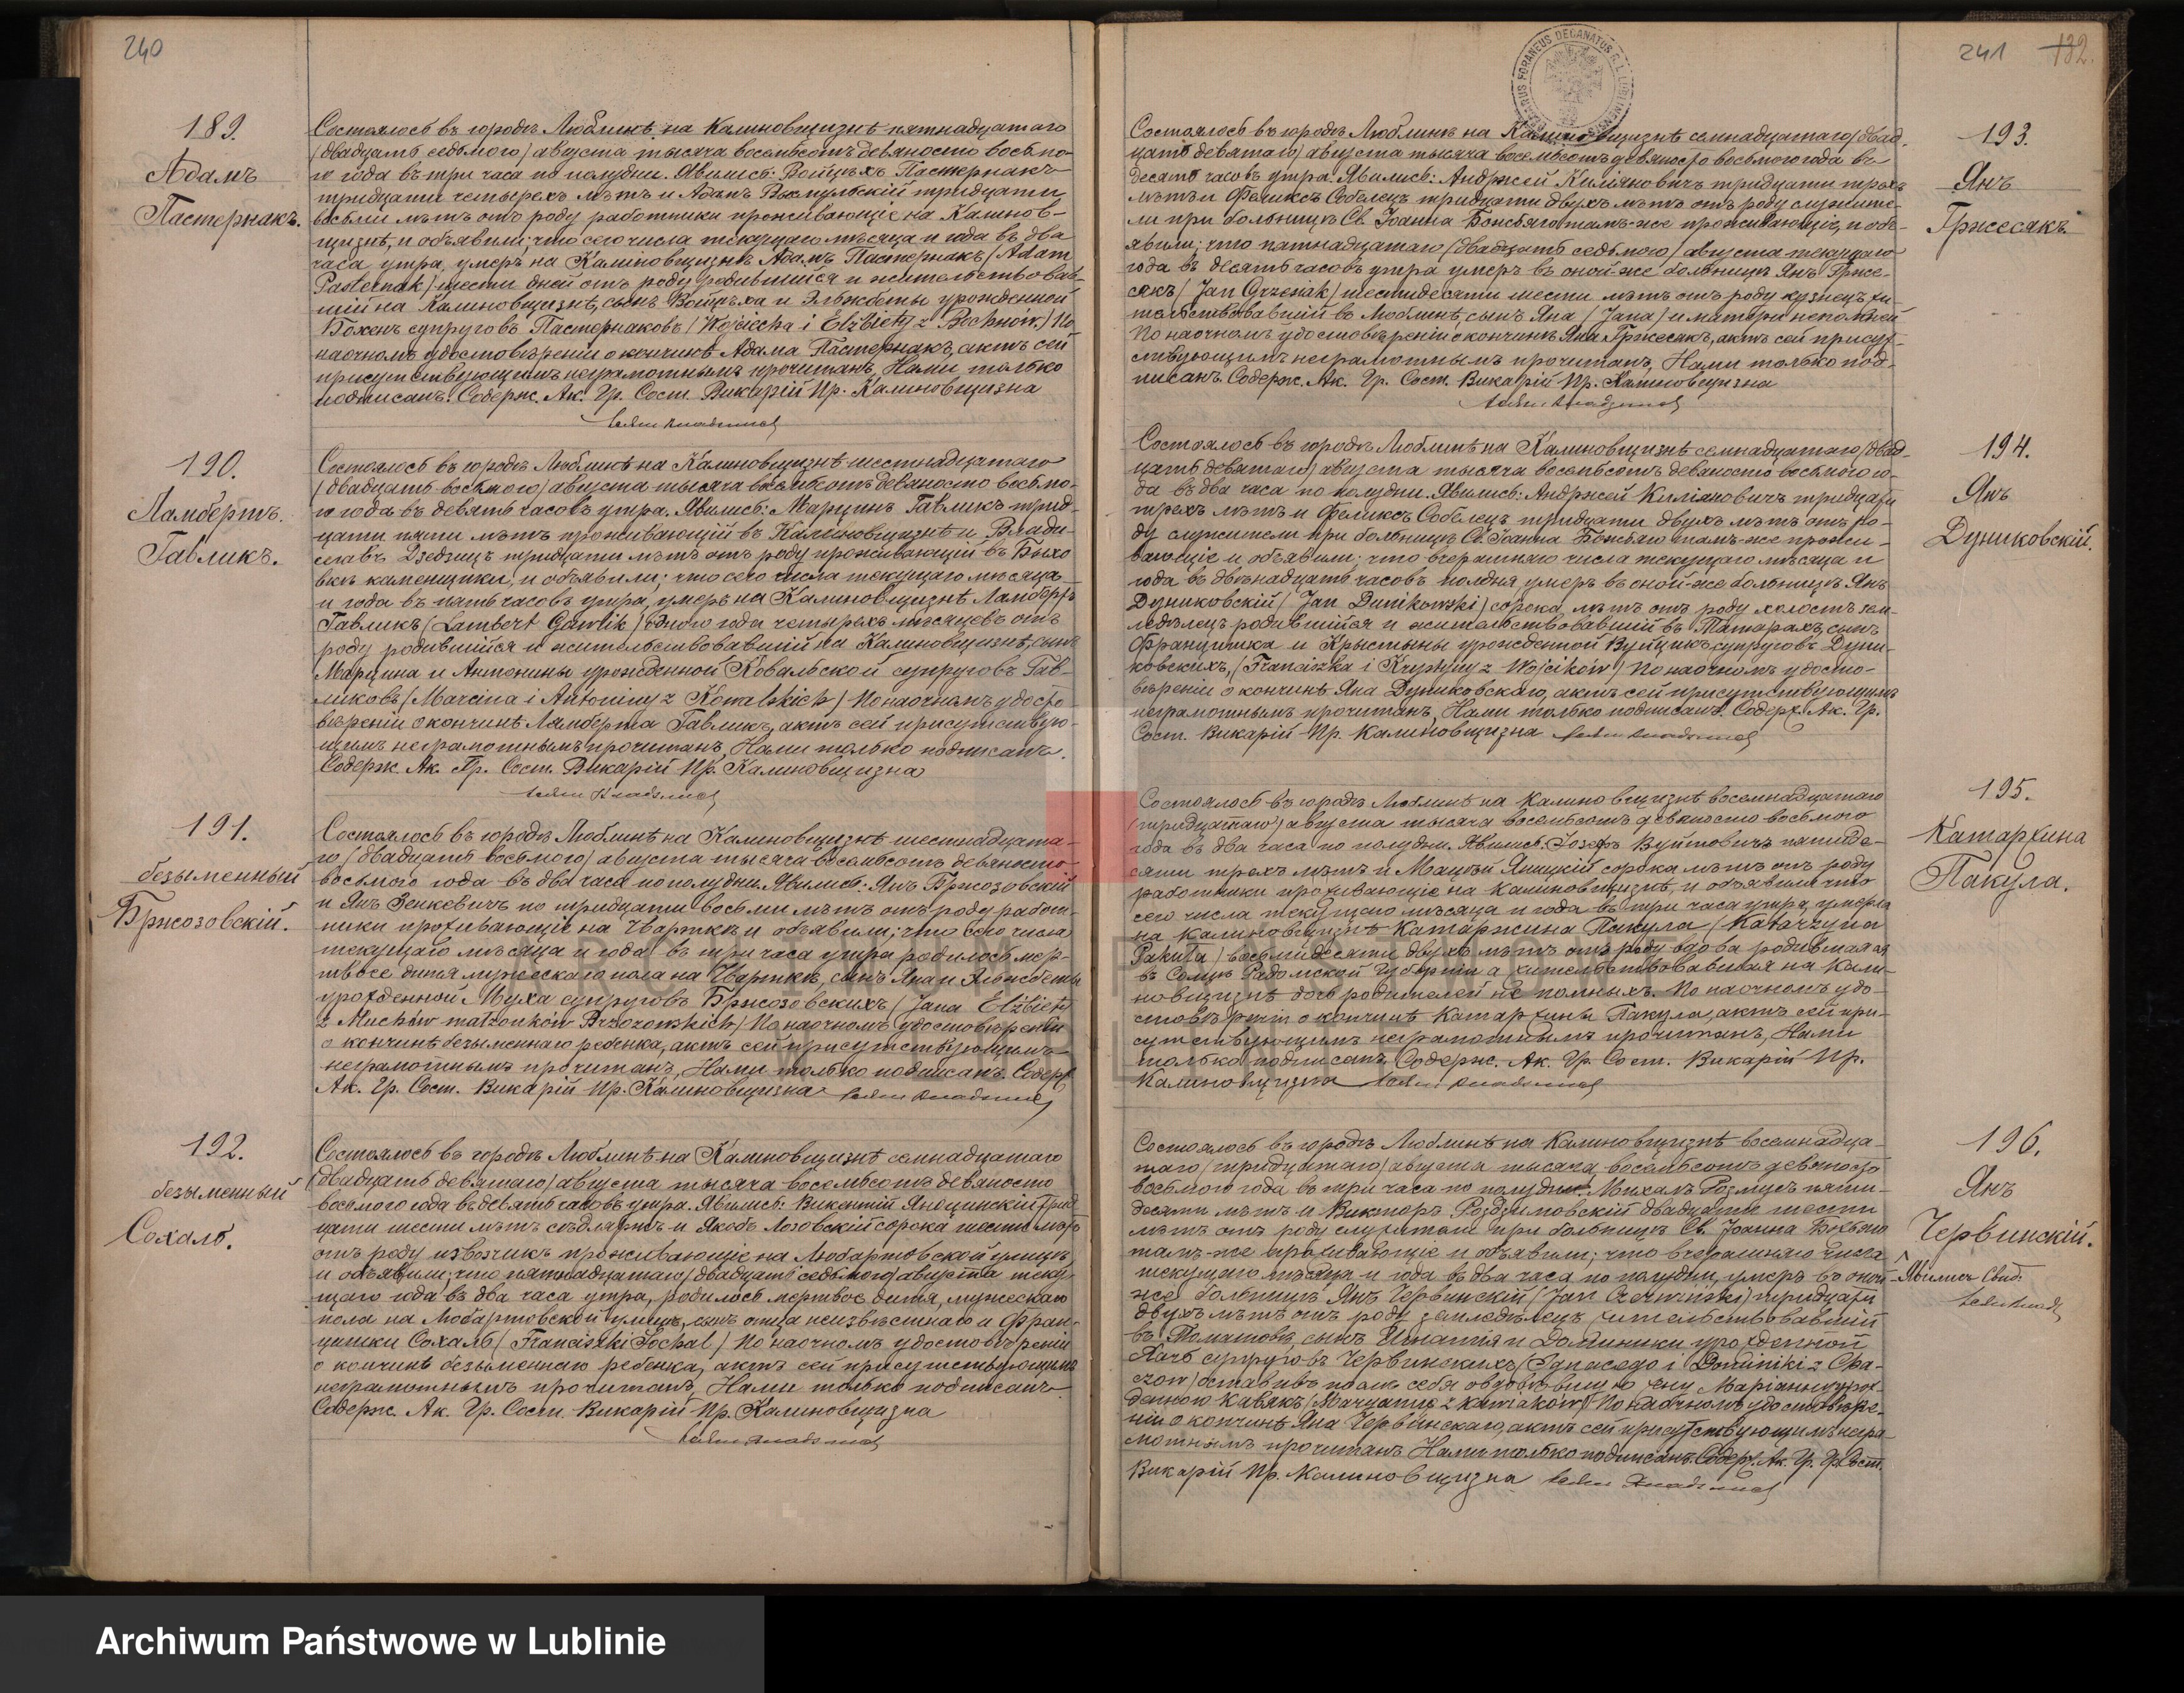 240
189.
Адамъ
Пастернакъ.
Состоялось въ городѣ Люблинѣ на Калиновщизнѣ пятнадцатаго
/двадцать седьмого/ августа тысяча восемьсотъ девяносто восьмо-
го года въ три часа по полудни. Явились: Войцѣхъ Пастернакъ
тридцати четырехъ лѣтъ и Адамъ тридцати
восьми лѣтъ отъ роду работники проживающіе на Калинов-
щизнѣ, и объявили; что сего числа текущаго мѣсяца и года въ два
часа утра, умеръ на Калиновщизнѣ Адамъ Пастернакъ /Adam
Pasternak/ шести дней отъ роду родившійся и жительствовав-
шій на Калиновщизнѣ, сынъ Войцѣха и Эльжбеты урожденной
Боженъ супруговъ Пастернаковъ /Wojciecha i Elżbiety z Bochnów/ По
наочномъ удостовѣреніи о кончинѣ Адама Пастернакъ, актъ сей
присутствующимъ неграмотнымъ прочитанъ, Нами только
подписанъ. Содерж. Ак. Гр. Сост. Викарій Пр. Калиновщизна
190.
Ламбертъ.
Гавликъ.
Состоялось въ городѣ Люблинѣ на Калиновщизнѣ шестнадцатаго
/двадцать восьмого/ августа тысяча восемьсотъ девяносто восьмо-
го года въ девять часовъ утра. Явились: Марцинъ Гавликъ трид-
цати пяти лѣтъ проживающій въ Калиновщизнѣ и Влади-
славъ Дзедзицъ тридцати лѣтъ отъ роду проживающій въ Быхо
вкѣ каменщики, и объявили; что сего числа текущаго мѣсяца
и года въ пять часовъ утра, умеръ на Калиновщизнѣ Ламбертъ
Гавликъ /Lambert Gawlik/ одного года четырехъ мѣсяцевъ отъ
роду родившійся и жительствовавшій на Калиновщизнѣ, сынъ
Марцина и Антонины урожденной Ковальской супруговъ Гав-
ликовъ /Marcina i Antoniny z Kowalskich/ По наочномъ удосто-
вѣреніи о кончинѣ Ламберта Гавликъ, актъ сей присутствую-
щимъ неграмотнымъ прочитанъ, Нами только подписанъ.
Содерж. Ак. Гр. Сост. Викарій Пр. Калиновщизна
191.
безыменный
Бржозовскій.
Состоялось въ городѣ Люблинѣ на Калиновщизнѣ шестнадцата-
го /двадцать восьмого/ августа тысяча восемьсотъ девяносто
восьмого года въ два часа по полудни. Явились: Янъ Бржозовскій
и Янъ Зенкевичъ по тридцати восьми лѣтъ отъ роду работ-
ники проживающіе на Чварткѣ и объявили; что сего числа
текущаго мѣсяца и года въ три часа утра родилось мер-
твое дитя мужескаго пола на Чварткѣ, сынъ Яна и Эльжбеты
урожденной Муха супруговъ Бржозовскихъ /Jana Elżbiety
z Muchów małżonków Brzozowskich/ По наочномъ удостовѣреніи
о кончинѣ безыменнаго ребенка, актъ сей присутствующимъ
неграмотнымъ прочитанъ, Нами только подписанъ. Содерж.
Ак. Гр. Сост. Викарій Пр. Калиновщизна
192.
безыменный
Сохаль.
Состоялось въ городѣ Люблинѣ на Калиновщизнѣ семнадцатаго
/двадцать девятаго/ августа тысяча восемьсотъ девяносто
восьмого года въ девять часовъ утра. Явились: Викентій трид-
цати шести лѣтъ сѣдляржъ и Якобъ Лозовскій сорока шести лѣтъ
отъ роду извозчикъ проживающіе на Любартовской улицѣ,
и объявили; что пятнадцатаго /двадцать седьмого/ августа теку-
щаго года въ два часа утра, родилось мертвое дитя, мужескаго
пола на Любартовской улицѣ, сынъ отца неизвѣстнаго и Фран-
цишки Сохаль /Franciszki Sochal/ По наочномъ удостовѣреніи
о кончинѣ безыменнаго ребенка, актъ сей присутствующимъ
неграмотнымъ прочитанъ, Нами только подписанъ
Содерж. Ак. Гр. Сост. Викарій Пр. Калиновщизна
241 132.
193.
Янъ
Гржесякъ.
Состоялось въ городѣ Люблинѣ на Калиновщизнѣ семнадцатаго /двад-
цать девятаго/ августа тысяча восемьсотъ девяносто восьмого года въ
десять часовъ утра. Явились: Андржей Киліяновичъ тридцати трехъ
лѣтъ и Феликсъ Собелецъ тридцати двухъ лѣтъ отъ роду служите-
ли при больницѣ Св. Іоанна Божьяго тамъ-же проживающіе, и объ-
явили; что пятнадцатаго /двадцать седьмого/ августа текущаго
года въ десять часовъ утра умеръ въ оной-же больницѣ Янъ Гржe-
сякъ /Jan Grzesiak/ шестидесяти шести лѣтъ отъ роду кузнецъ жи-
тельствовавшій въ Люблинѣ, сынъ Яна /Jana/ и матери непомной
По наочномъ удостовѣреніи о кончинѣ Яна Гржесякъ, актъ сей присут-
ствующимъ неграмотнымъ прочитанъ, Нами только под-
писанъ. Содерж. Ак. Гр. Сост. Викарій Пр. Калиновщизна
194.
Янъ
Дуниковскій.
Состоялось въ городѣ Люблинѣ на Калиновщизнѣ семнадцатаго /двад-
цать девятаго/ августа тысяча восемьсотъ девяносто восьмого го-
да въ два часа по полудни. Явились: Андржей Киліяновичъ тридцати
трехъ лѣтъ и Феликсъ Собелецъ тридцати двухъ лѣтъ отъ ро-
ду служители при больницѣ Св. Іоанна Божьяго тамъ-же прожи-
вающіе и объявили; что вчерашняго числа текущаго мѣсяца и
года въ двѣнадцать часовъ полдня умеръ въ оной-же больницѣ Янъ
Дуниковскій /Jan Dunikowski/ сорока лѣтъ отъ роду холостъ зем-
ледѣлецъ родившійся и жительствовавшій въ Татарахъ, сынъ
Францишка и Крыстыны урожденной Вуйцикъ супруговъ Дуни-
ковскихъ, /Franciszka i Krystyny z Wojcików/ По наочномъ удосто-
вѣреніи о кончинѣ Яна Дуниковскаго, актъ сей присутствующимъ
неграмотнымъ прочитанъ, Нами только подписанъ. Содерж. Ак. Гр.
Сост. Викарій Пр. Калиновщизна
195.
Катаржина
Пакула.
Состоялось въ городѣ Люблинѣ на Калиновщизнѣ восемнадцатаго
/тридцатаго/ августа тысяча восемьсотъ девяносто восьмого
года въ два часа по полудни. Явились: Іозефъ Вуйтовичъ пятиде-
сяти трехъ лѣтъ и Мацѣй Яницкій сорока лѣтъ отъ роду
работники проживающіе на Калиновщизнѣ, и объявили что
сего числа текущаго мѣсяца и года въ три часа утра, умерла
на Калиновщизнѣ Катаржина Пакула /Katarzyna
Pakuła/ восьмидесяти двухъ лѣтъ отъ роду вдова родившаяся
въ Сольцѣ Радомской Губерніи а жительствовавшая на Кали-
новщизнѣ дочь родителей не помныхъ. По наочномъ удо-
стовѣреніи о кончинѣ Катаржины Пакула, актъ сей при-
сутствующимъ неграмотнымъ прочитанъ, Нами
только подписанъ. Содерж. Ак. Гр. Сост. Викарій Пр.
Калиновщизна
196.
Янъ
Червинскій.
Явились Свид.
Состоялось въ городѣ Люблинѣ на Калиновщизнѣ восемнадца-
таго /тридцатаго/ августа тысяча восемьсотъ девяносто
восьмого года въ три часа по полудни. Михалъ Розмусъ пяти-
десяти лѣтъ и Викторъ двадцати шести
лѣтъ отъ роду служители при больницѣ Св. Іоанна Божьяго
тамъ-же проживающіе и объявили; что вчерашняго числа
текущаго мѣсяца и года въ два часа по полудни, умеръ въ оной-
же больницѣ Янъ Червинскій /Jan Czerwiński/ тридцати
двухъ лѣтъ отъ роду земледѣлецъ жительствовавшій
въ сынъ Игнатія и Доминики урожденной
супруговъ Червинскихъ /Ignacego i Dominiki z
оставивъ послѣ себя овдовѣвшую жену Маріанну урож-
денною Кавякъ /Maryannę z Kawiaków/ По наочномъ удостовѣре-
ніи о кончинѣ Яна Червинскаго, актъ сей присутствующимъ негра-
мотнымъ прочитанъ Нами только подписанъ. Содерж. Ак. Гр. Сост.
Викарій Пр. Калиновщизна
Archiwum Państwowe w Lublinie